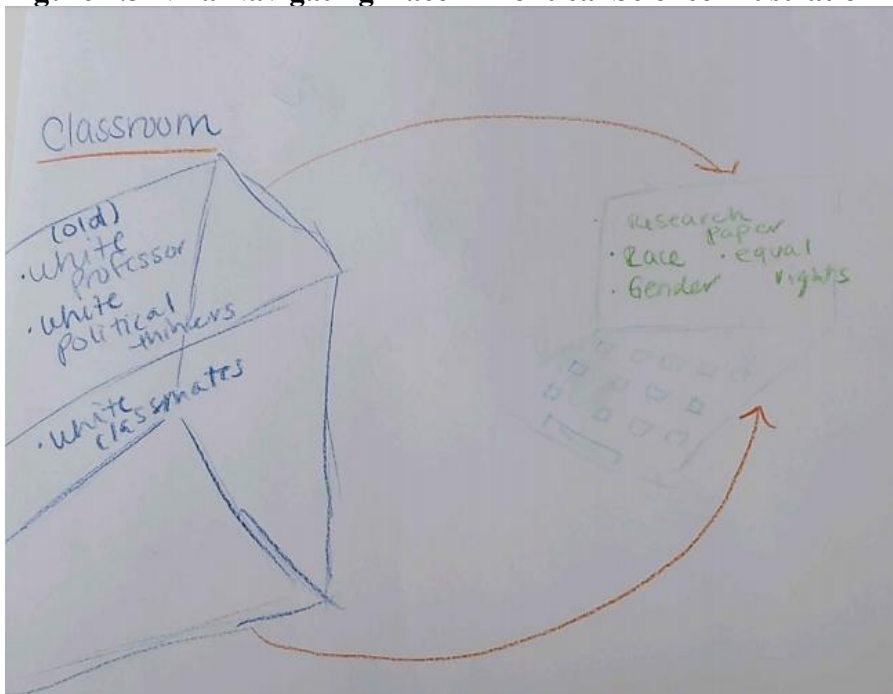 Classroom
(old)
• White
professor
• White
political
thinkers
• White
classmates
• Research
paper
• Race • equal
• Gender rights